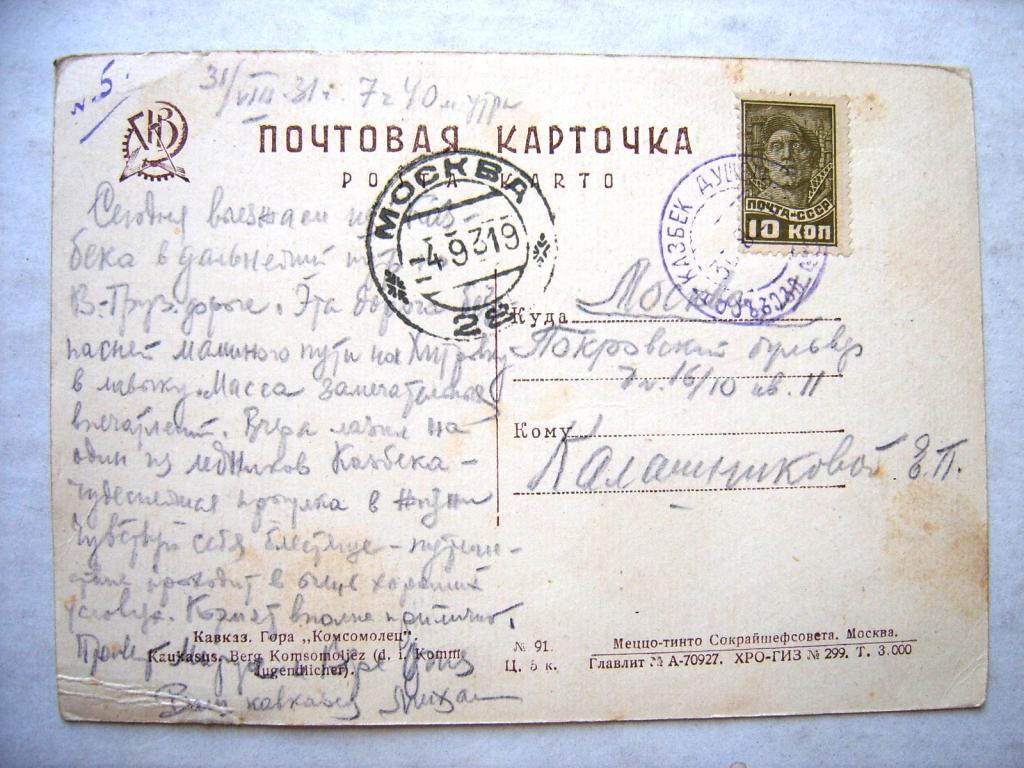 N. 5.
31/VIII-31 г. 7 ч 40 м утра
ПОЧТОВАЯ КАРТОЧКА
POŜTA KARTO
МОСКВА
-4.9.31 19
28
КАЗБЕК ДУШ
ПОЧТА-СССР
10 КОП
Сегодня выезжаем из Каз-
бека в дальнейший путь по
В.-Груз. дороге. Эта дорога безо-
пасней машиного пути на Хитровку
в лавочку. Масса замечательных
впечатлений. Вчера лазил на
один из ледников Казбека -
чудеснейшая прогулка в жизни
Чувствую себя блестяще - путеше-
ствие проходит в очень хороших
условиях. Комнат вполне прилично.
Привет
Ваш кавказец Михаил
Куда Москва
Покровский бульвар
д. 16/10 кв. 11
Кому
Калашниковой Е. П.
Кавказ. Гора „Комсомолец".
Kaukasus. Berg Komsomoljez (d. i. Komm.
Jugendlicher).
№ 91.
Ц. 5 к.
Меццо-тинто Сокрайшефсовета. Москва.
Главлит № А-70927. ХРО-ГИЗ № 299. Т. 3.000